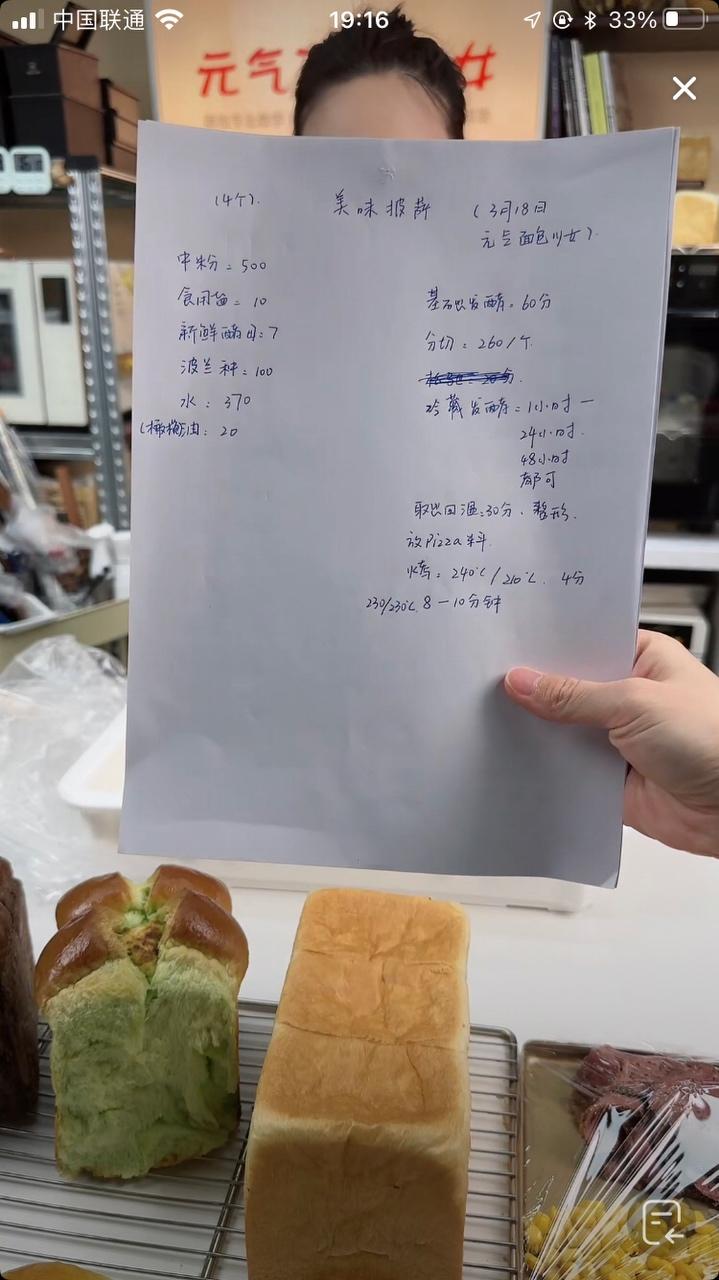 中国联通
19:16
33%
元气
女
(4个).
美味披萨
(3月18日
元气面包少女).
中粉 = 500
食用盐 = 10
新鲜酵母: 7
波兰种 = 100
水: 370
(橄榄油: 20
基础发酵: 60分
分切: 260/个
冷藏发酵: 1小时一
24小时.
48小时
都可
取出回温: 30分、整形.
放Pizza料.
烤: 240℃/210℃. 4分
230/230℃ 8－10分钟